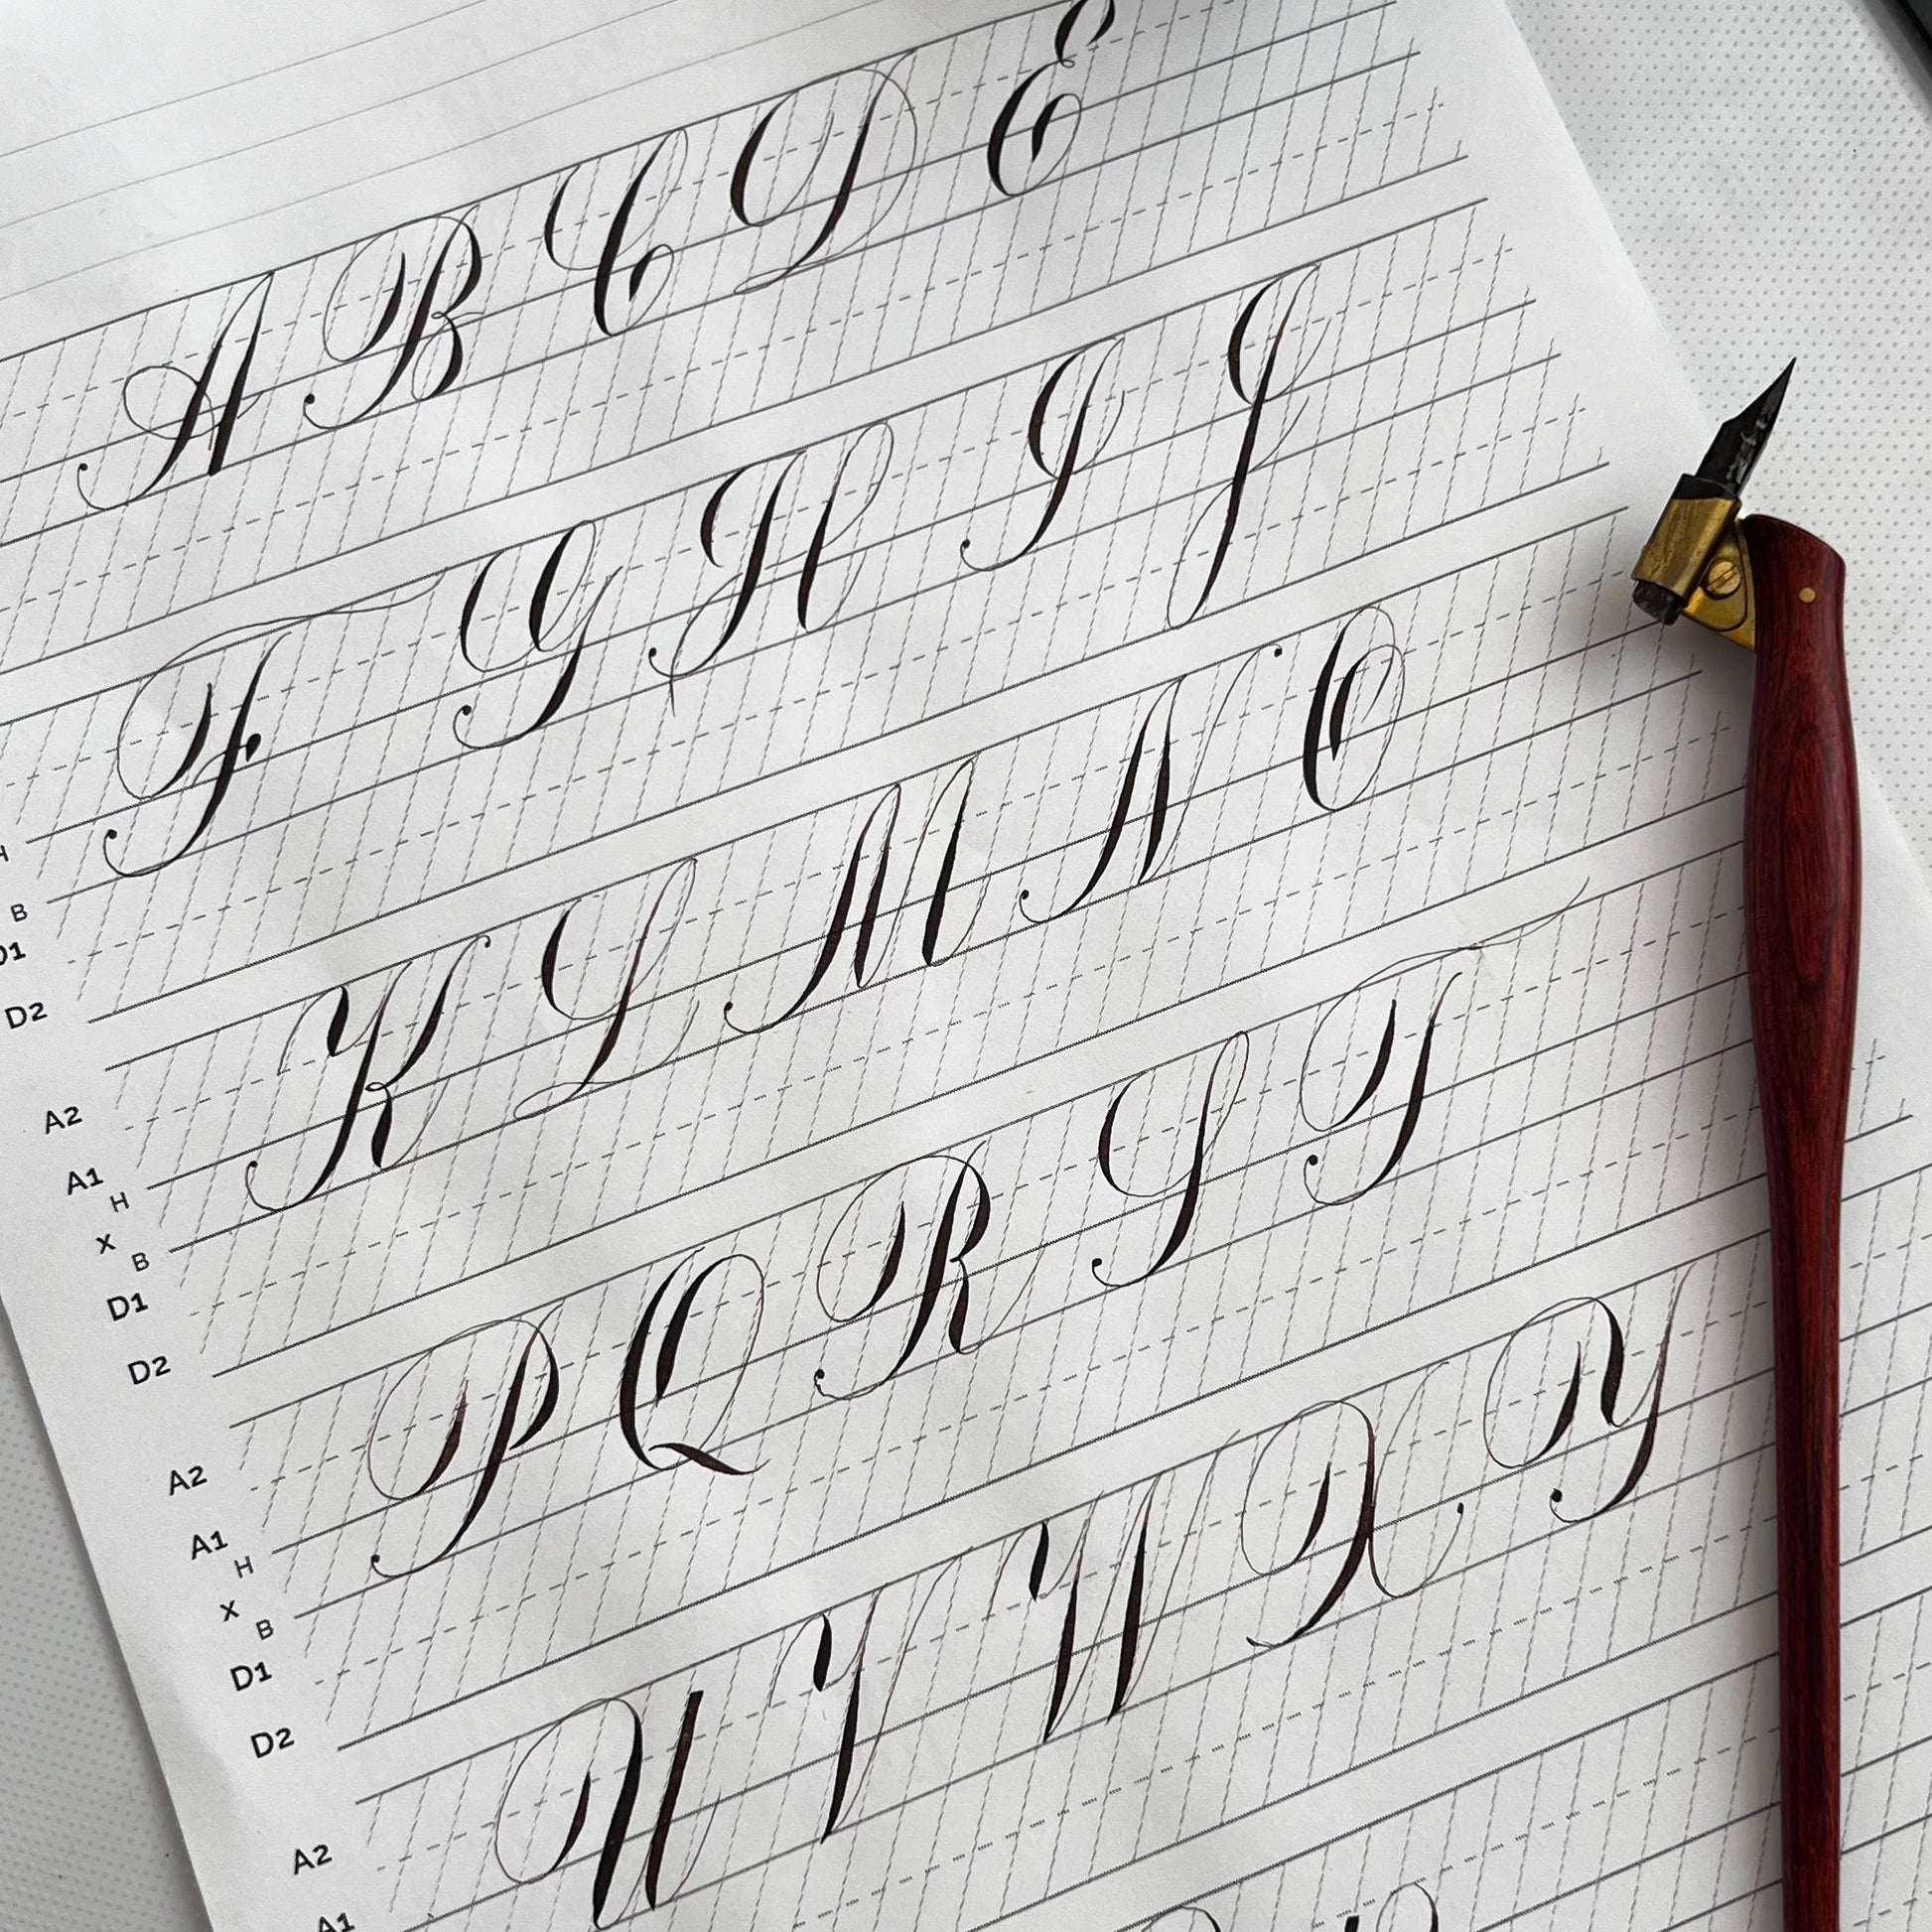 A B C D E
F G H I J
H
B
D1
D2
K L M N O
A2
A1
H
X
B
D1
D2
P Q R S T
A2
A1
H
X
B
D1
D2
U V W X Y
A2
A1